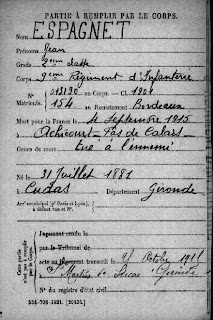 PARTIE À REMPLIR PAR LE CORPS.
Nom ESPAGNET
Prénoms Jean
Grade 2ème classe
Corps 9ème Régiment d'Infanterie
N° 013130 au Corps. — Cl. 1901
Matricule. 154 au Recrutement Bordeaux
Mort pour la France le 4 Septembre 1915
à Achicourt - Pas de Calais
Genre de mort tué à l'ennemi
Né le 31 Juillet 1881
à Cudos Département Gironde
Arr' municipal (p' Paris et Lyon),
à défaut rue et N°.
Cette partie
n'est pas à remplir
par le Corps.
Jugement rendu le
par le Tribunal de
acte ou jugement transcrit le Octobre 1915
à St Martin de Gironde
N° du registre d'état civil
534-708-1921. [26434.]